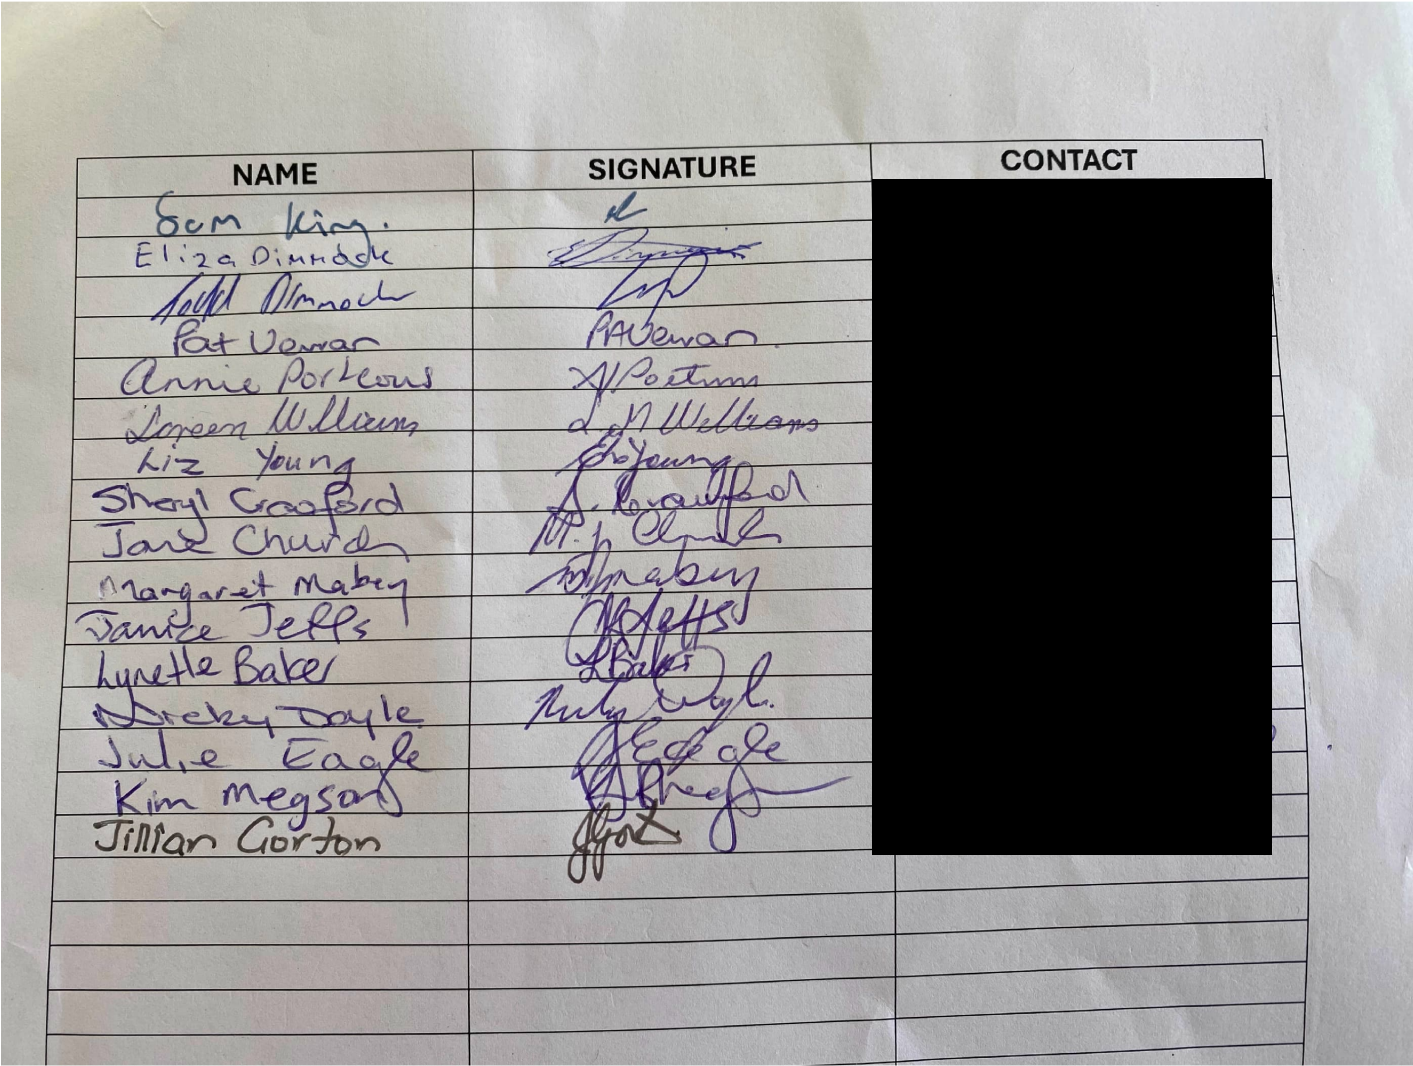 NAME SIGNATURE CONTACT
Sam King.
Eliza Dimmock
Todd Dimmock
Pat Verran PAVerran.
Annie Porteous
Loreen Williams L M Williams
Liz Young Young
Sheryl Craoford S. Crawford
Jane Church M. J. Church
Margaret Mabey Mabey
Janice Jeffs Jeffs
Lynette Baker LBaker
Doyle
Julie Eagle JEagle
Kim Megson
Jillian Gorton JGort